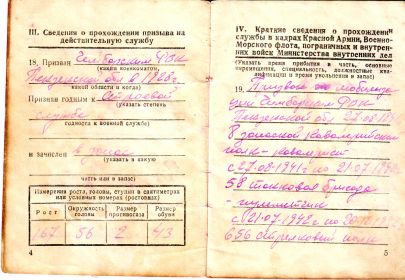 III. Сведения о прохождении призыва на
действительную службу
18. Призван Чембарским РВК
(каким военкоматом,
Пензенской обл в 1928 г.
какой области и когда)
Признан годным к строевой
(указать степень
службе
годности к военной службе)
и зачислен в запас
(указать в какую
часть или в запас)
Измерения роста, головы, ступни в сантиметрах
или условных номерах (ростовках)
Рост Окружность головы Размер противогаза Размер обуви
167 56 2 43
4
IV. Краткие сведения о прохождении
службы в кадрах Красной Армии, Военно-
Морского флота, пограничных и внутрен-
них войск Министерства внутренних дел
(Указать время прибытия в часть, основные
наименования, специальность, должностные ква-
лификации и время увольнения в запас)
19. Призван по мобилиза
ции Чембарским РВК
Пензенской обл 27.08
8 запасной кавалерийский
полк - кавалерист
с 27-08-1941 г по 21-07-1942
58 танковая бригада
с 21-07-1942 по 20
656 стрелковый полк
5